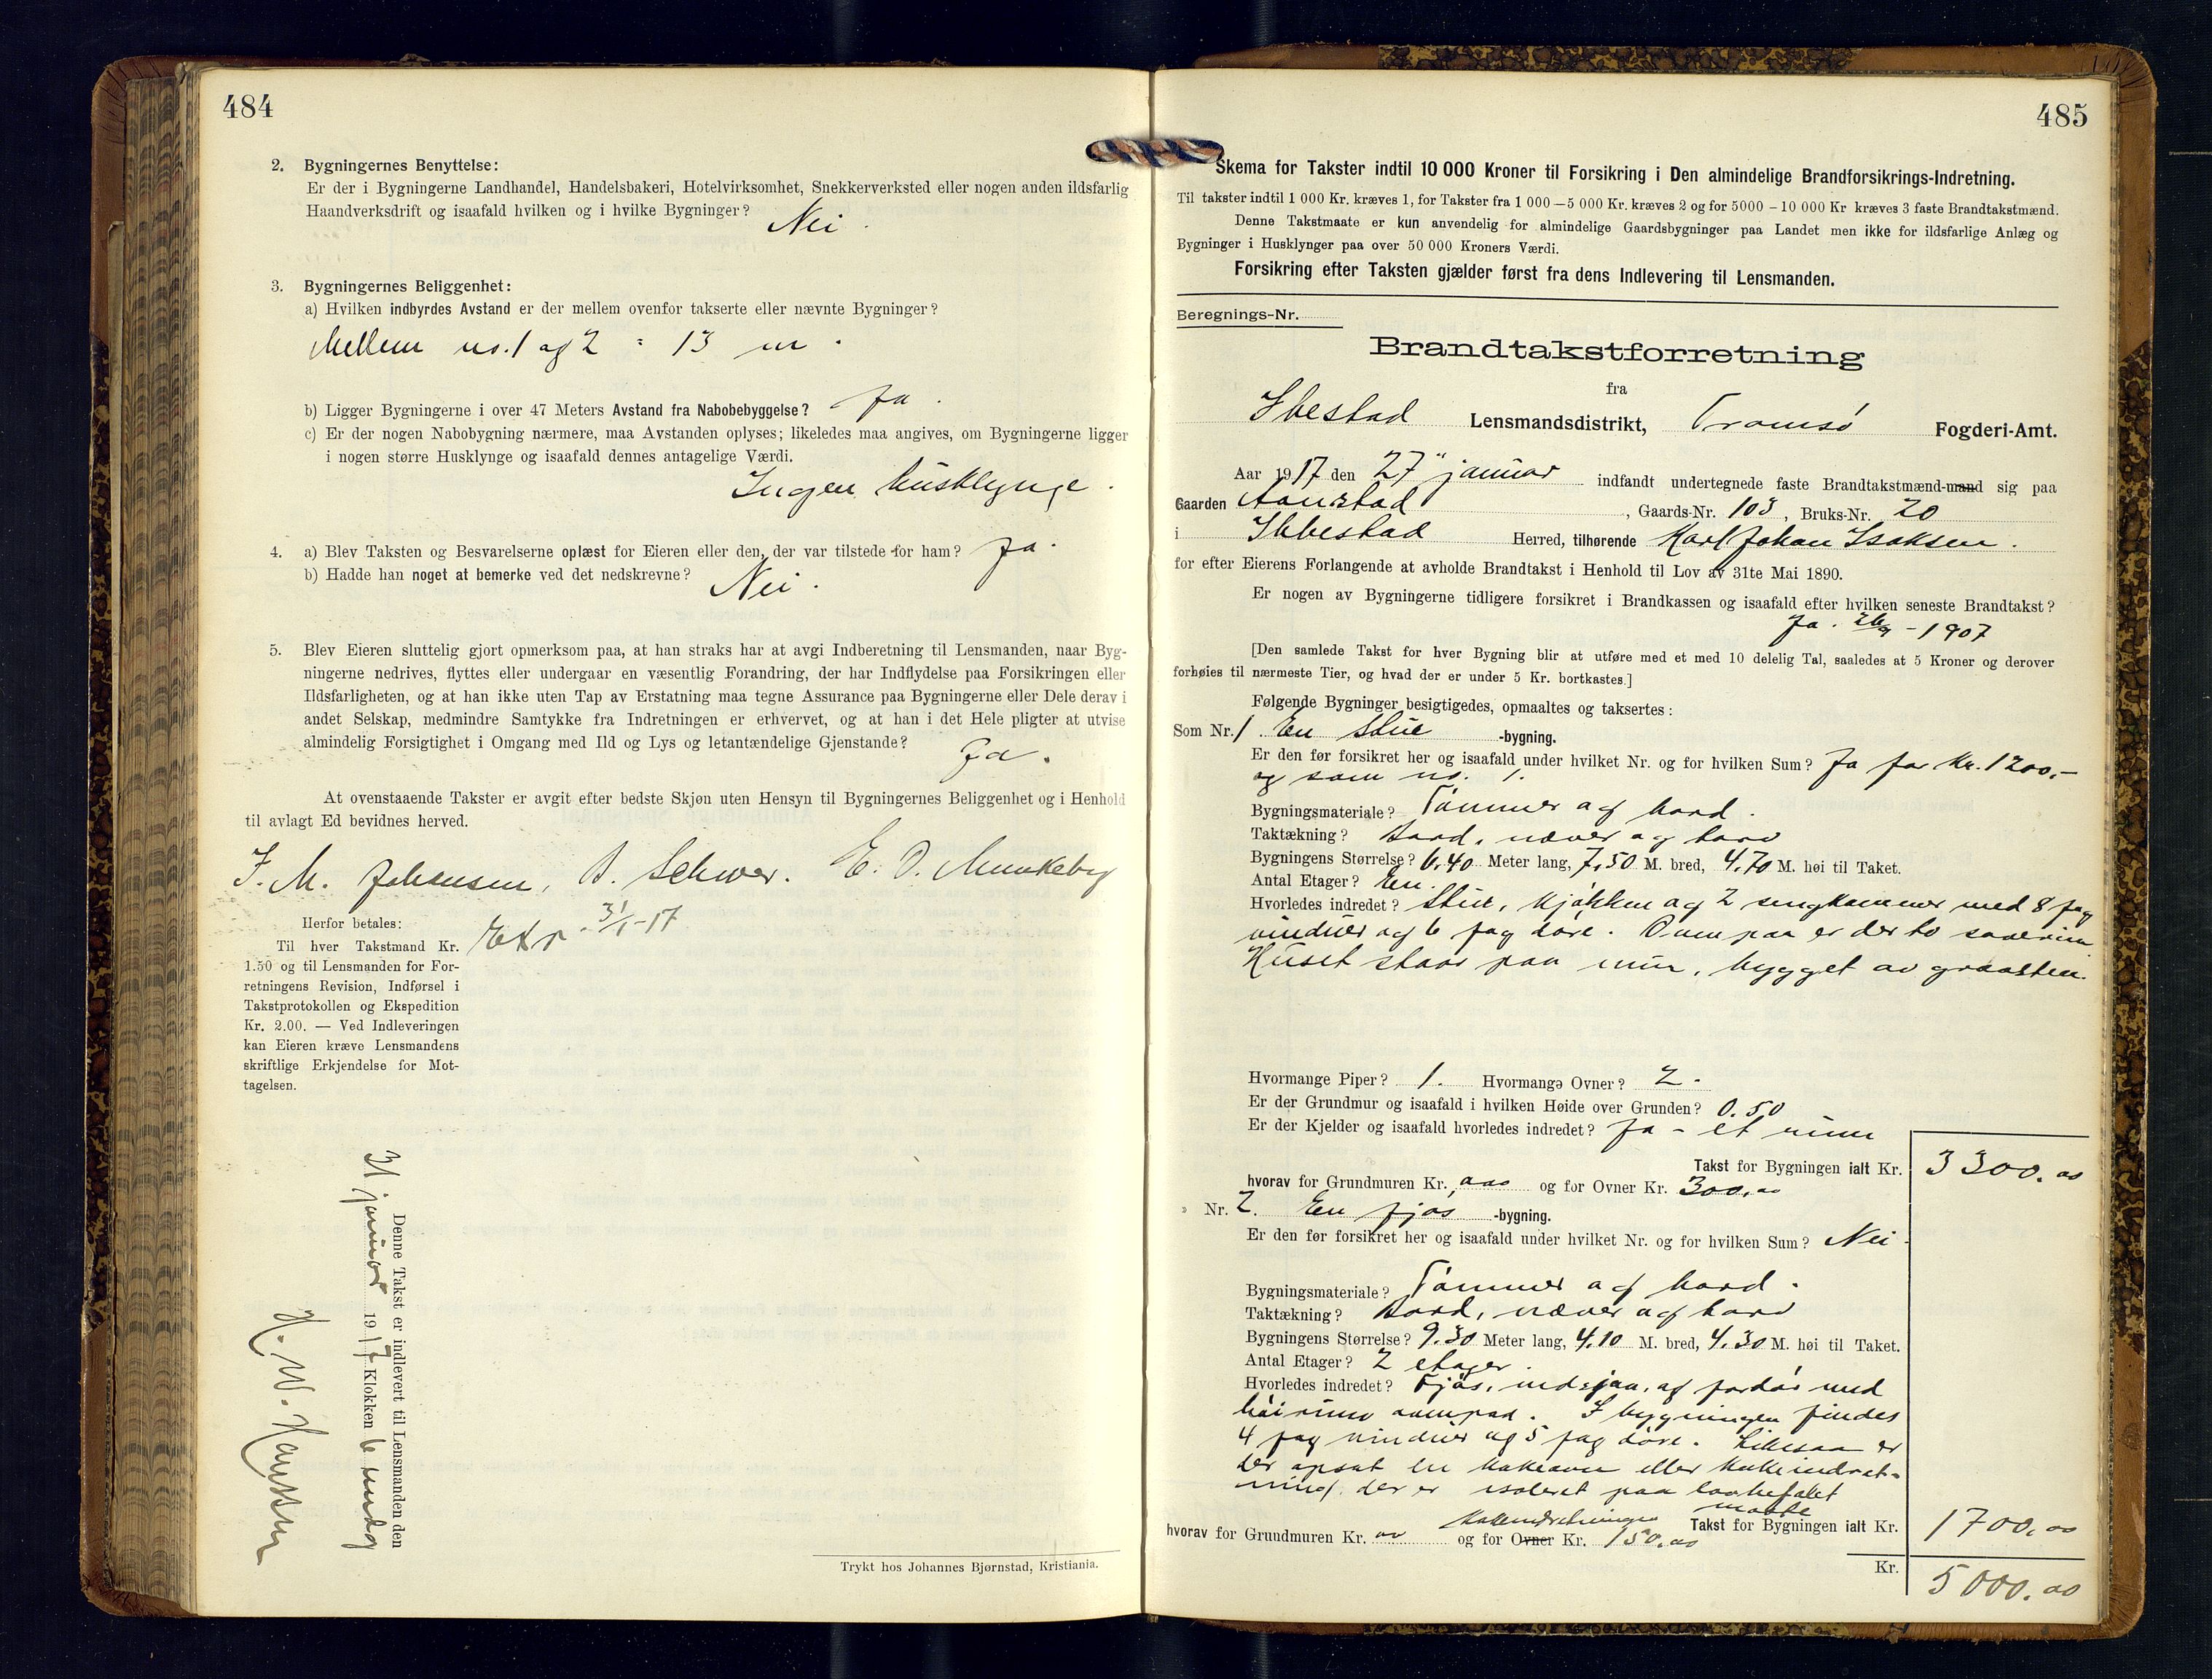 484
2. Bygningernes Benyttelse:
Er der i Bygningerne Landhandel, Handelsbakeri, Hotelvirksomhet, Snekkerverksted eller nogen anden ildsfarlig
Haandverksdrift og isaafald hvilken og i hvilke Bygninger? Nei.
3. Bygningernes Beliggenhet:
a) Hvilken indbyrdes Avstand er der mellem ovenfor takserte eller nævnte Bygninger?
Mellem no. 1 og 2 = 13 m.
b) Ligger Bygningerne i over 47 Meters Avstand fra Nabobebyggelse? Ja.
c) Er der nogen Nabobygning nærmere, maa Avstanden oplyses; likeledes maa angives, om Bygningerne ligger
i nogen større Husklynge og isaafald dennes antagelige Værdi.
Ingen husklynge.
4. a) Blev Taksten og Besvarelserne oplæst for Eieren eller den, der var tilstede for ham? Ja.
b) Hadde han noget at bemerke ved det nedskrevne? Nei.
5. Blev Eieren sluttelig gjort opmerksom paa, at han straks har at avgi Indberetning til Lensmanden, naar Byg-
ningerne nedrives, flyttes eller undergaar en væsentlig Forandring, der har Indflydelse paa Forsikringen eller
Ildsfarligheten, og at han ikke uten Tap av Erstatning maa tegne Assurance paa Bygningerne eller Dele derav i
andet Selskap, medmindre Samtykke fra Indretningen er erhvervet, og at han i det Hele pligter at utvise
almindelig Forsigtighet i Omgang med Ild og Lys og letantændelige Gjenstande? Ja.
At ovenstaaende Takster er avgit efter bedste Skjøn uten Hensyn til Bygningernes Beliggenhet og i Henhold
til avlagt Ed bevidnes herved.
J. M. Johansen, A. Schwer. E. O. Munkeby
Herfor betales:
Til hver Takstmand Kr.
1.50 og til Lensmanden for For-
retningens Revision, Indførsel i
Takstprotokollen og Ekspedition
Kr. 2.00. — Ved Indleveringen
kan Eieren kræve Lensmandens
skriftlige Erkjendelse for Mot-
tagelsen.
Exp. 31/1-17
Denne Takst er indlevert til Lensmanden den
31 januar 1917 Klokken 6 midag
Trykt hos Johannes Bjørnstad, Kristiania.
485
Skema for Takster indtil 10 000 Kroner til Forsikring i Den almindelige Brandforsikrings-Indretning.
Til takster indtil 1 000 Kr. kræves 1, for Takster fra 1 000 — 5 000 Kr. kræves 2 og for 5000 – 10 000 Kr kræves 3 faste Brandtakstmænd.
Denne Takstmaate er kun anvendelig for almindelige Gaardsbygninger paa Landet men ikke for ildsfarlige Anlæg og
Bygninger i Husklynger paa over 50 000 Kroners Værdi.
Forsikring efter Taksten gjælder først fra dens Indlevering til Lensmanden.
Beregnings-Nr.
Brandtakstforretning
fra
Ibestad Lensmandsdistrikt, Tromsø Fogderi-Amt.
Aar 1917 den 27" januar indfandt undertegnede faste Brandtakstmænd-mand sig paa
Gaarden Aanstad, Gaards-Nr. 103, Bruks-Nr. 20
i Ibbestad Herred, tilhørende Karl Johan Isaksen.
for efter Eierens Forlangende at avholde Brandtakst i Henhold til Lov av 31te Mai 1890.
Er nogen av Bygningerne tidligere forsikret i Brandkassen og isaafald efter hvilken seneste Brandtakst?
Ja. 26/9 - 1907
[Den samlede Takst for hver Bygning blir at utføre med et med 10 delelig Tal, saaledes at 5 Kroner og derover
forhøies til nærmeste Tier, og hvad der er under 5 Kr. bortkastes.]
Følgende Bygninger besigtigedes, opmaaltes og taksertes:
Som Nr. 1. En Stue -bygning.
Er den før forsikret her og isaafald under hvilket Nr. og for hvilken Sum? Ja for Kr. 1200,-
og som no. 1.
Bygningsmateriale? Tømmer og bord.
Taktækning? Bord, næver og torv
Bygningens Størrelse? 6.40 Meter lang, 7.50 M. bred, 4.70 M. høi til Taket.
Antal Etager? En.
Hvorledes indredet? Stue, kjøkken og 2 sengkammer med 8 fag
vinduer og 6 fag døre. Ovenpaa er der to soverum
Huset staar paa mur, bygget av graasten.
Hvormange Piper? 1. Hvormange Ovner? 2.
Er der Grundmur og isaafald i hvilken Høide over Grunden? 0.50
Er der Kjelder og isaafald hvorledes indredet? Ja – et rum
Takst for Bygningen ialt Kr. 3300.00
hvorav for Grundmuren Kr. og for Ovner Kr. 300,00
Nr. 2. En fjøs -bygning.
Er den før forsikret her og isaafald under hvilket Nr. og for hvilken Sum? Nei.
Bygningsmateriale? Tømmer og bord.
Taktækning? Bord, næver og torv
Bygningens Størrelse? 9.30 Meter lang, 4.10 M. bred, 4.30 M. høi til Taket.
Antal Etager? 2 etager.
Hvorledes indredet? Fjøs, og med
høirum. I bygningen findes
4 fag vinduer og 5 fag døre. Likesaa er
der opsat en kokeovn eller kokeindret-
ning, der er isoleret paa lovbefalet
maate
Takst for Bygningen ialt Kr. 1700,00
hvorav for Grundmuren Kr. og for Ovner Kr. 150,00
kokeindretningen
Kr. 5000.00